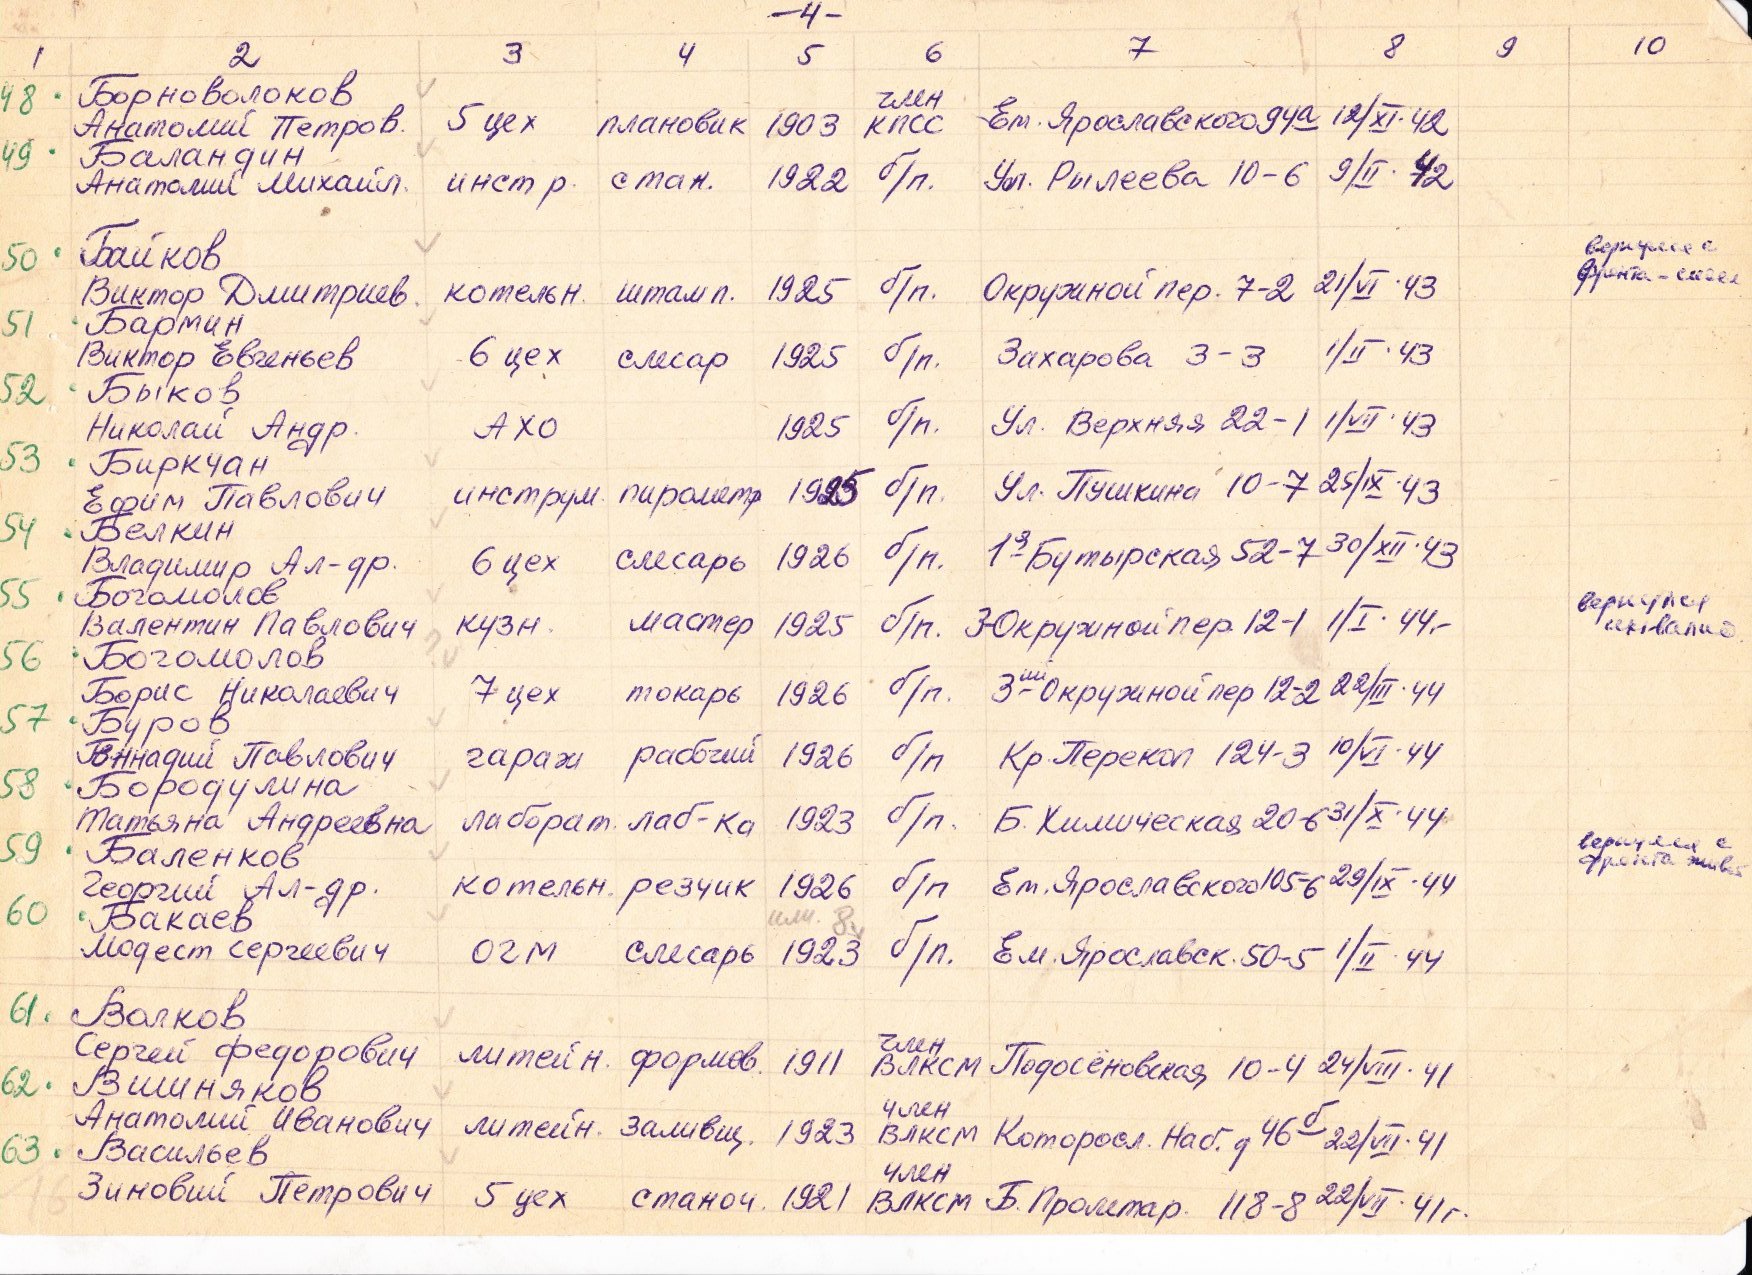 -4-
1 2 3 4 5 6 7 8 9 10
48. Борноволоков член
Анатолий Петров. 5 цех плановик 1903 КПСС Ем. Ярославского 94а 12/XI. 42
49. Баландин
Анатолий Михайл. инстр. стан. 1922 б/п. Ул. Рылеева 10-6 9/II. 42
50. Байков вернулся с
Виктор Дмитриев. котельн. штамп. 1925 б/п. Окружной пер. 7-2 21/VI. 43 фронта -
51. Бармин
Виктор Евгеньев 6 цех слесар 1925 б/п. Захарова 3-3 1/II. 43
52. Быков
Николай Андр. АХО 1925 б/п. Ул. Верхняя 22-1 1/VII. 43
53. Биркчан
Ефим Павлович инструм. пирометр 1925 б/п. Ул. Пушкина 10-7 25/IX. 43
54. Белкин
Владимир Ал-др. 6 цех слесарь 1926 б/п. 1я Бутырская 52-7 30/XII. 43
55. Богомолов вернулся
Валентин Павлович кузн. мастер 1925 б/п. 3-Окружной пер. 12-1 1/I. 44.- инвалид
56. Богомолов
Борис Николаевич 7 цех токарь 1926 б/п. 3ий Окружной пер 12-2 22/III. 44
57. Буров
Геннадий Павлович гараж рабочий 1926 б/п Кр. Перекоп 124-3 10/VI. 44
58. Бородулина
Татьяна Андреевна лаборат. лаб-ка 1923 б/п. Б. Химическая 20-6 31/X. 44
59. Баленков вернулся с
Георгий Ал-др. котельн. резчик 1926 б/п Ем. Ярославского 105-6 29/IX. 44 фронта живой
60. Бакаев или. 8
Модест Сергеевич ОГМ слесарь 1923 б/п. Ем. Ярославск. 50-5 1/II. 44
61. Волков член
Сергей Федорович литейн. формов. 1911 ВЛКСМ Подосёновская 10-4 24/VIII. 41
62. Вишняков член
Анатолий Иванович литейн. заливщ. 1923 ВЛКСМ Которосл. Наб. д 46б 22/VII. 41
63. Васильев член
Зиновий Петрович 5 цех станоч. 1921 ВЛКСМ Б. Пролетар. 118-8 22/VII. 41 г.